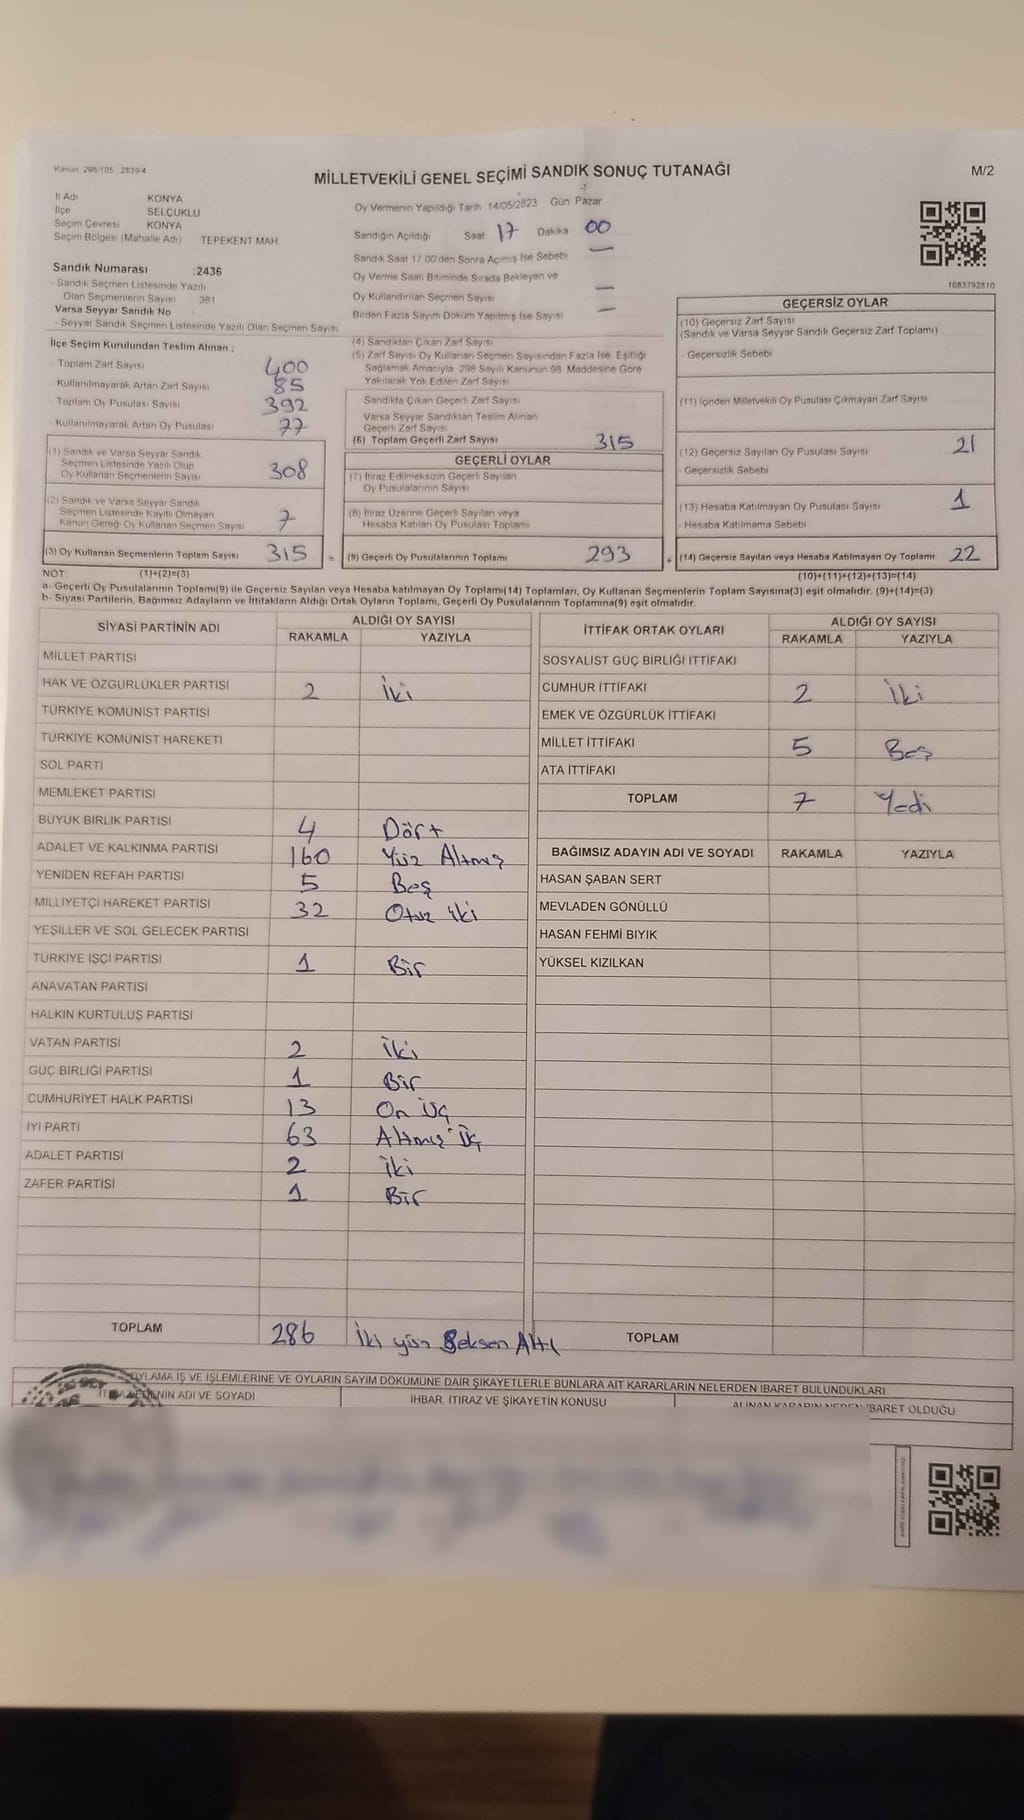 Kanun 298/105 2839/4
MİLLETVEKİLİ GENEL SEÇİMİ SANDIK SONUÇ TUTANAĞI
M/2
İl Adı KONYA
İlçe SELÇUKLU
Seçim Çevresi KONYA
Seçim Bölgesi (Mahalle Adı) TEPEKENT MAH
Sandık Numarası :2436
- Sandık Seçmen Listesinde Yazılı
Olan Seçmenlerin Sayısı 381
Varsa Seyyar Sandık No
- Seyyar Sandık Seçmen Listesinde Yazılı Olan Seçmen Sayısı
Oy Vermenin Yapıldığı Tarih 14/05/2023 Gün: Pazar
Sandığın Açıldığı Saat 17 Dakika 00
Sandık Saat 17.00'den Sonra Açımış İse Sebebi —
Oy Verme Saati Bitiminde Sırada Bekleyen ve
Oy Kullandırılan Seçmen Sayısı —
Birden Fazla Sayım Döküm Yapılmış İse Sayısı —
1083792810
İlçe Seçim Kurulundan Teslim Alınan ;
- Toplam Zarf Sayısı 400
- Kullanılmayarak Artan Zarf Sayısı 85
- Toplam Oy Pusulası Sayısı 392
- Kullanılmayarak Artan Oy Pusulası 77
(1) Sandık ve Varsa Seyyar Sandık
Seçmen Listesinde Yazılı Olup
Oy Kullanan Seçmenlerin Sayısı 308
(2) Sandık ve Varsa Seyyar Sandık
Seçmen Listesinde Kayıtlı Olmayan
Kanun Gereği Oy Kullanan Seçmen Sayısı 7
(3) Oy Kullanan Seçmenlerin Toplam Sayısı 315 =
(4) Sandıktan Çıkan Zarf Sayısı
(5) Zarf Sayısı Oy Kullanan Seçmen Sayısından Fazla İse, Eşitliği
Sağlamak Amacıyla, 298 Sayılı Kanunun 98. Maddesine Göre
Yakılarak Yok Edilen Zarf Sayısı
Sandıkta Çıkan Geçerli Zarf Sayısı
Varsa Seyyar Sandıktan Teslim Alınan
Geçerli Zarf Sayısı
(6) Toplam Geçerli Zarf Sayısı 315
GEÇERLİ OYLAR
(7) İtiraz Edilmeksizin Geçerli Sayılan
Oy Pusulalarının Sayısı
(8) İtiraz Üzerine Geçerli Sayılan veya
Hesaba Katılan Oy Pusulası Toplamı
(9) Geçerli Oy Pusulalarının Toplamı 293 +
GEÇERSİZ OYLAR
(10) Geçersiz Zarf Sayısı
(Sandık ve Varsa Seyyar Sandık Geçersiz Zarf Toplamı)
- Geçersizlik Sebebi
(11) İçinden Milletvekili Oy Pusulası Çıkmayan Zarf Sayısı
(12) Geçersiz Sayılan Oy Pusulası Sayısı 21
- Geçersizlik Sebebi
(13) Hesaba Katılmayan Oy Pusulası Sayısı 1
- Hesaba Katılmama Sebebi
(14) Geçersiz Sayılan veya Hesaba Katılmayan Oy Toplamı 22
NOT: (1)+(2)=(3) (10)+(11)+(12)+(13)=(14)
a- Geçerli Oy Pusulalarının Toplamı(9) ile Geçersiz Sayılan veya Hesaba katılmayan Oy Toplamı(14) Toplamları, Oy Kullanan Seçmenlerin Toplam Sayısına(3) eşit olmalıdır. (9)+(14)=(3)
b- Siyasi Partilerin, Bağımsız Adayların ve İttifakların Aldığı Ortak Oyların Toplamı, Geçerli Oy Pusulalarının Toplamına(9) eşit olmalıdır.
SİYASİ PARTİNİN ADI ALDIĞI OY SAYISI
RAKAMLA YAZIYLA
MİLLET PARTİSİ
HAK VE ÖZGÜRLÜKLER PARTİSİ 2 İki
TÜRKİYE KOMÜNİST PARTİSİ
TÜRKİYE KOMÜNİST HAREKETİ
SOL PARTİ
MEMLEKET PARTİSİ
BÜYÜK BİRLİK PARTİSİ 4 Dört
ADALET VE KALKINMA PARTİSİ 160 Yüz Altmış
YENİDEN REFAH PARTİSİ 5 Beş
MİLLİYETÇİ HAREKET PARTİSİ 32 Otuz iki
YEŞİLLER VE SOL GELECEK PARTİSİ
TÜRKİYE İŞÇİ PARTİSİ 1 Bir
ANAVATAN PARTİSİ
HALKIN KURTULUŞ PARTİSİ
VATAN PARTİSİ 2 İki
GÜÇ BİRLİĞİ PARTİSİ 1 Bir
CUMHURİYET HALK PARTİSİ 13 On Üç
İYİ PARTİ 63 Altmış Üç
ADALET PARTİSİ 2 İki
ZAFER PARTİSİ 1 Bir
TOPLAM 286 İki yüz Seksen Altı
İTTİFAK ORTAK OYLARI ALDIĞI OY SAYISI
RAKAMLA YAZIYLA
SOSYALİST GÜÇ BİRLİĞİ İTTİFAKI
CUMHUR İTTİFAKI 2 İki
EMEK VE ÖZGÜRLÜK İTTİFAKI
MİLLET İTTİFAKI 5 Beş
ATA İTTİFAKI
TOPLAM 7 Yedi
BAĞIMSIZ ADAYIN ADI VE SOYADI RAKAMLA YAZIYLA
HASAN ŞABAN SERT
MEVLADEN GÖNÜLLÜ
HASAN FEHMİ BIYIK
YÜKSEL KIZILKAN
TOPLAM
OYLAMA İŞ VE İŞLEMLERİNE VE OYLARIN SAYIM DÖKÜMÜNE DAİR ŞİKAYETLERLE BUNLARA AİT KARARLARIN NELERDEN İBARET BULUNDUKLARI
İTİRAZ EDENİN ADI VE SOYADI İHBAR, İTİRAZ VE ŞİKAYETİN KONUSU ALINAN KARARIN NEDEN İBARET OLDUĞU